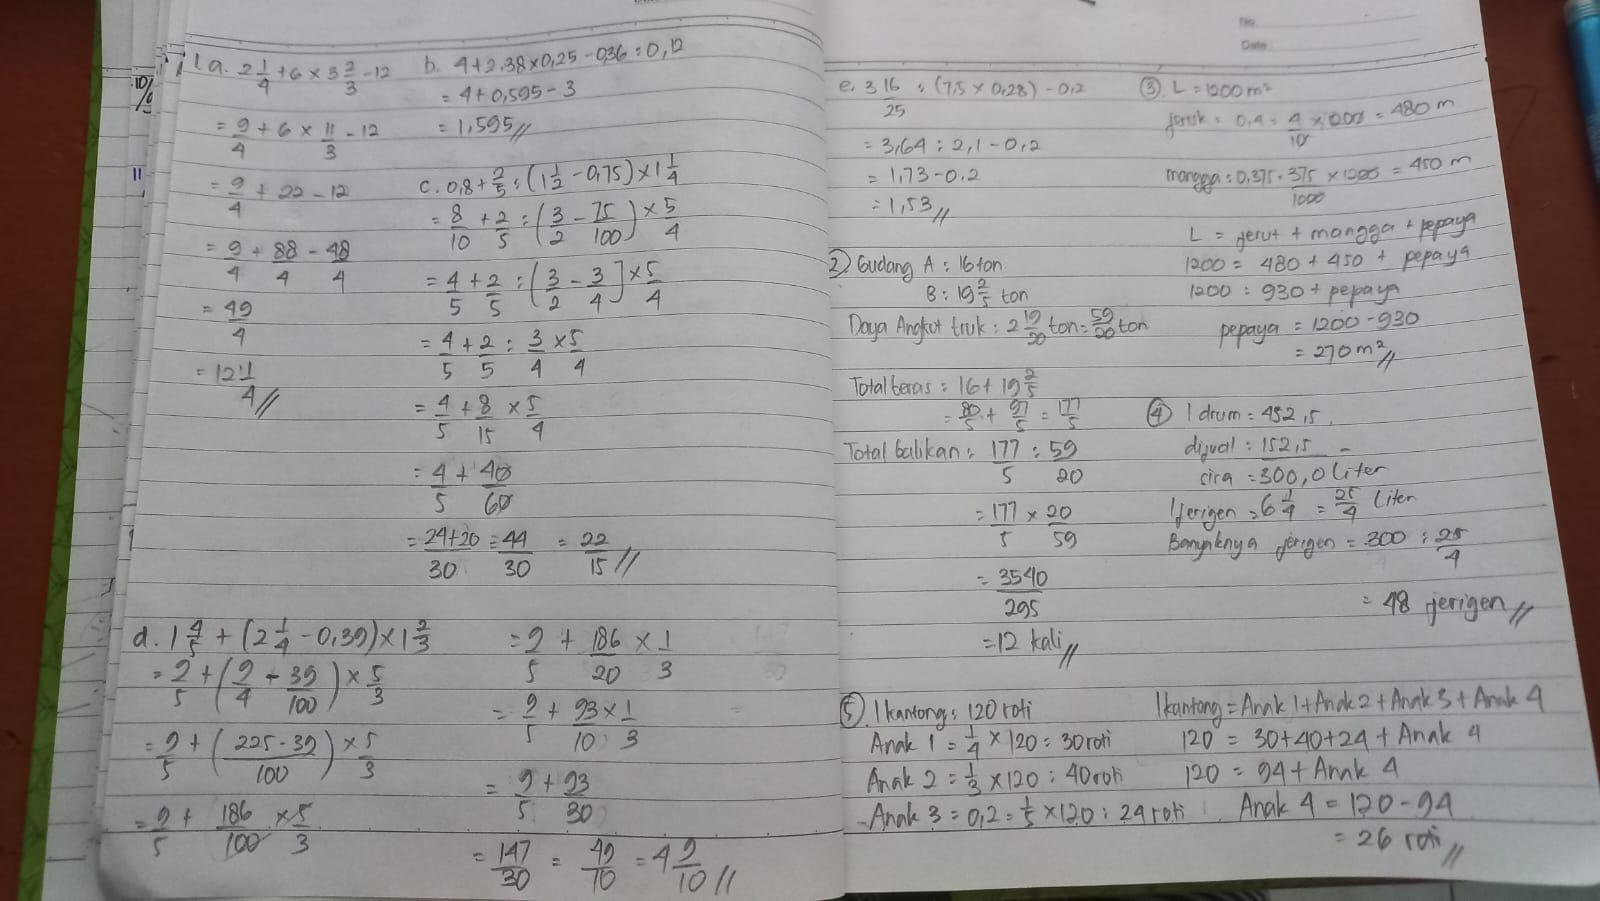 No.
Date
10%
11
1.a. 2 1/4 + 6 × 3 2/3 - 12
= 9/4 + 6 × 11/3 - 12
= 9/4 + 22 - 12
= 9/4 + 88/4 - 48/4
= 49/4
= 12 1/4 //
b. 4 + 2,38 × 0,25 - 0,36 : 0,12
= 4 + 0,595 - 3
= 1,595 //
c. 0,8 + 2/5 : (1 1/2 - 0,75) × 1 1/4
= 8/10 + 2/5 : (3/2 - 75/100) × 5/4
= 4/5 + 2/5 : (3/2 - 3/4] × 5/4
= 4/5 + 2/5 : 3/4 × 5/4
= 4/5 + 8/15 × 5/4
= 4/5 + 40/60
= 24+20/30 = 44/30 = 22/15 //
d. 1 4/5 + (2 1/4 - 0,39) × 1 2/3
= 9/5 + (9/4 - 39/100) × 5/3
= 9/5 + (225-39/100) × 5/3
= 9/5 + 186/100 × 5/3
= 9/5 + 186/20 × 1/3
= 9/5 + 93/10 × 1/3
= 9/5 + 93/30
= 147/30 = 49/10 = 4 9/10 //
e. 3 16/25 : (7,5 × 0,28) - 0,2
= 3,64 : 2,1 - 0,2
= 1,73 - 0,2
= 1,53 //
2) Gudang A : 16 ton
B : 19 2/5 ton
Daya Angkut truk : 2 19/20 ton = 59/20 ton
Total beras = 16 + 19 2/5
= 80/5 + 97/5 = 177/5
Total balikan : 177/5 : 59/20
= 177/5 × 20/59
= 3540/295
= 12 kali //
3) L = 1200 m²
jeruk : 0,4 : 4/10 × 1200 = 480 m
mangga : 0,375 . 375/1000 × 1200 = 450 m
L = jeruk + mangga + pepaya
1200 = 480 + 450 + pepaya
1200 : 930 + pepaya
pepaya = 1200 - 930
= 270 m² //
4) 1 drum = 452,5
dijual : 152,5 -
sisa = 300,0 liter
1 jerigen = 6 1/4 = 25/4 liter
Banyaknya jerigen = 300 : 25/4
= 48 jerigen //
5) 1 kantong : 120 roti
Anak 1 = 1/4 × 120 = 30 roti
Anak 2 = 1/3 × 120 : 40 roti
Anak 3 = 0,2 = 1/5 × 120 : 24 roti
1 kantong = Anak 1 + Anak 2 + Anak 3 + Anak 4
120 = 30 + 40 + 24 + Anak 4
120 = 94 + Anak 4
Anak 4 = 120 - 94
= 26 roti //